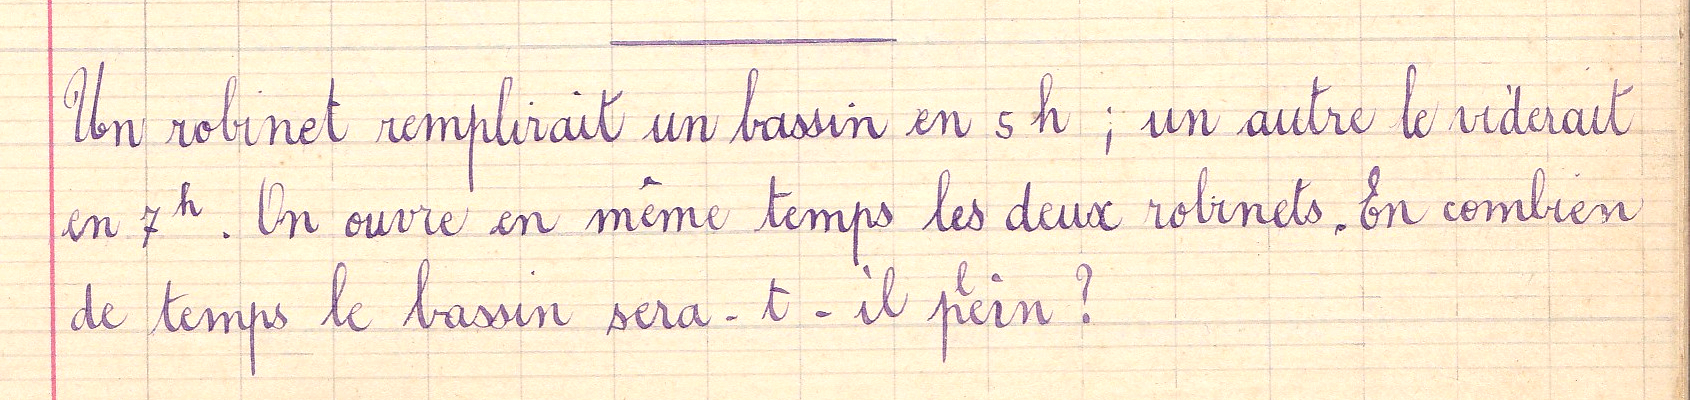 Un robinet remplirait un bassin en 5 h ; un autre le viderait
en 7 h . On ouvre en même temps les deux robinets. En combien
de temps le bassin sera - t - il plein ?